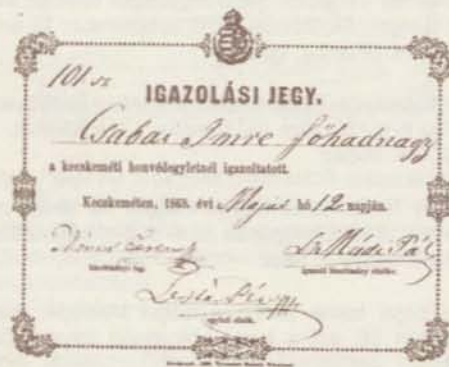 101 sz
IGAZOLÁSI JEGY.
Csabai Imre főhadnagy
a kecskeméti honvédegyletnél igazoltatott.
Kecskeméten, 1868. évi Majus hó 12. napján.
Pál
bizottmányi tag.
igazoló bizottmány elnöke.
egyleti elnök.